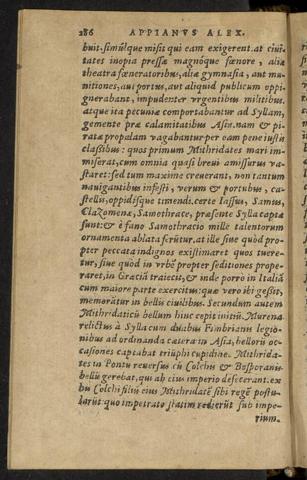 286 APPIANVS ALEX.
buit. simúlque misit qui eam exigerent. at ciui-
tates inopia pressæ magnóque fœnore, aliæ
theatra fœneratoribus, aliæ gymnasia, aut mu-
nitiones, aut portus, aut aliquid publicum oppi-
gnerabant, impudenter vrgentibus militibus.
atque ita pecunia comportabantur ad Syllam,
gemente præ calamitatibus Asia. nam & pi-
ratæ propalam vagabantur per eam pene iustis
classibus: quos primum Mithridates mari im-
miserat, cum omnia quasi breui amissurus va-
staret: sed tum maxime creuerant, non tantum
nauigantibus infesti, verum & portubus, ca-
stellis, oppidisque timendi. certe Iassus, Samus,
Clazomena, Samothrace, præsente Sylla captæ
sunt: & è fano Samothracio mille talentorum
ornamenta ablata ferũtur. at ille siue quòd pro-
pter peccata indignos existimaret quos tuere-
tur, siue quòd in vrbẽ propter seditiones prope-
raret, in Græciã traiecit, & inde porro in Italiã
cum maiore parte exercitus: quæ vero ibi gessit,
memorãtur in bellis ciuilibus. Secundum autem
Mithridaticũ bellum hinc cepit initiũ. Murena
relictus à Sylla cum duabus Fimbrianis legio-
nibus ad ordinanda cætera in Asia, bellorũ oc-
casiones captabat triũphi cupidine. Mithrida-
tes in Pontũ reuersus cũ Colchis & Bosporanis
bellũ gerebat, qui ab eius imperio defecerant. ex
his Colchi filiũ eius Mithridatẽ sibi regẽ postu-
larũt quo impetrato statim redierũt sub impe-
rium.